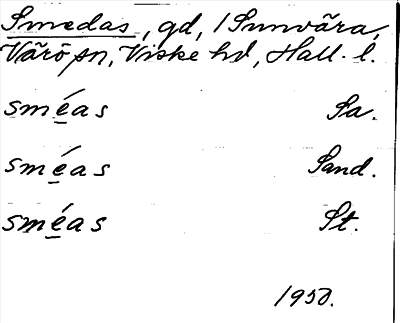 Smedas, gd, / Sunvära,
Värö sn, Viske hd, Hall. l.
sméas Sa.
sméas Sand.
sméas St.
1950.